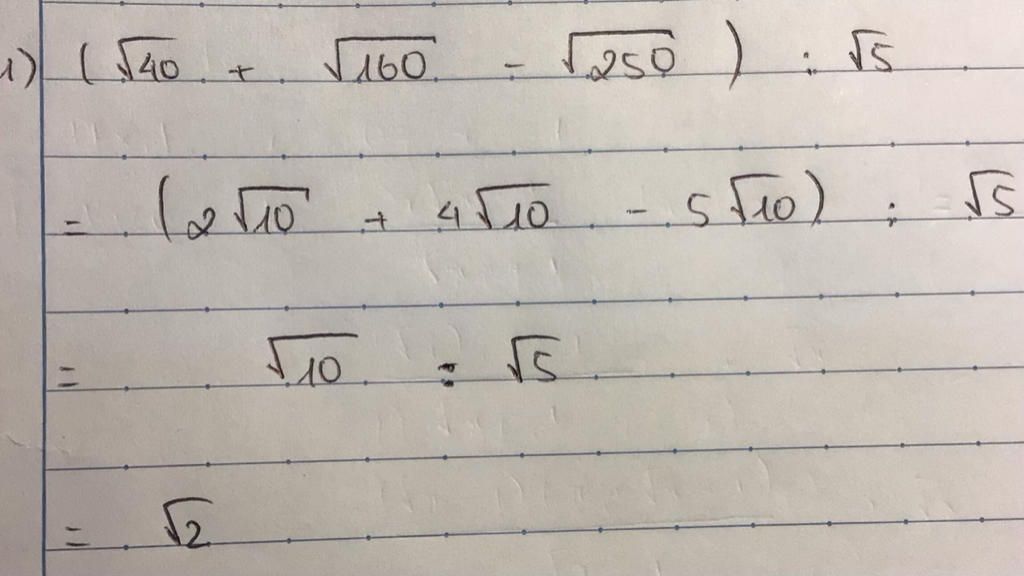 1) (√40 + √160 - √250) : √5
= (2√10 + 4√10 - 5√10) : √5
= √10 : √5
= √2